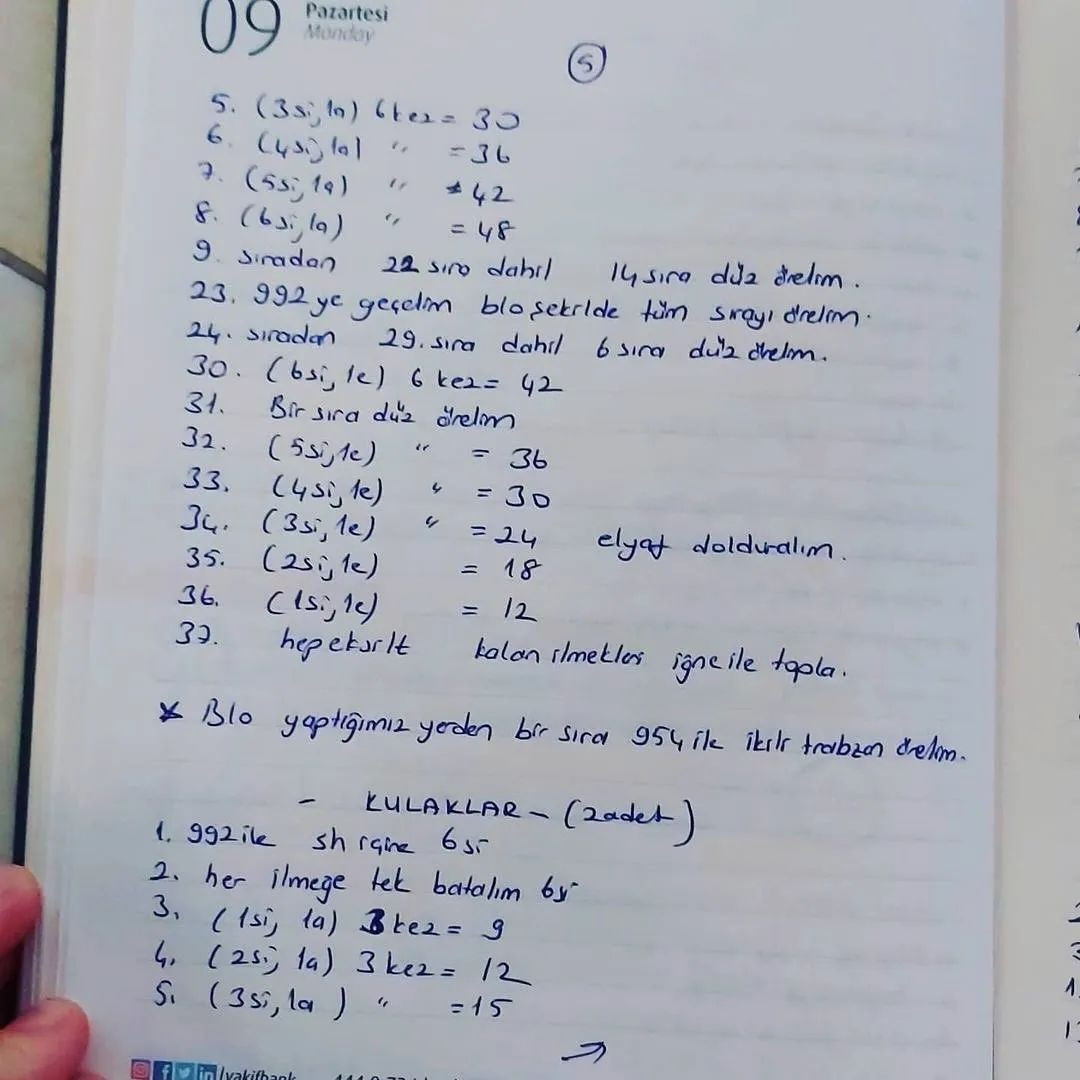 09 Pazartesi
Monday
5
5. (3si, 1a) 6 kez = 30
6. (4si, 1a) " = 36
7. (5si, 1a) " = 42
8. (6si, 1a) " = 48
9. sıradan 22 sıra dahil 14 sıra düz örelim.
23. 992 ye geçelim blo şekilde tüm sırayı örelim.
24. sıradan 29. sıra dahil 6 sıra düz örelim.
30. (6si, 1e) 6 kez = 42
31. Bir sıra düz örelim
32. (5si, 1e) " = 36
33. (4si, 1e) " = 30
34. (3si, 1e) " = 24 elyaf dolduralım.
35. (2si, 1e) = 18
36. (1si, 1e) = 12
37. hep eksilt kalan ilmekleri iğne ile topla.
* Blo yaptığımız yerden bir sıra 954 ile ikili trabzan örelim.
- KULAKLAR - (2 adet)
1. 992 ile sh içine 6 si
2. her ilmeğe tek batalım 6si
3. (1si, 1a) 3 kez = 9
4. (2si, 1a) 3 kez = 12
5. (3si, 1a) " = 15
→